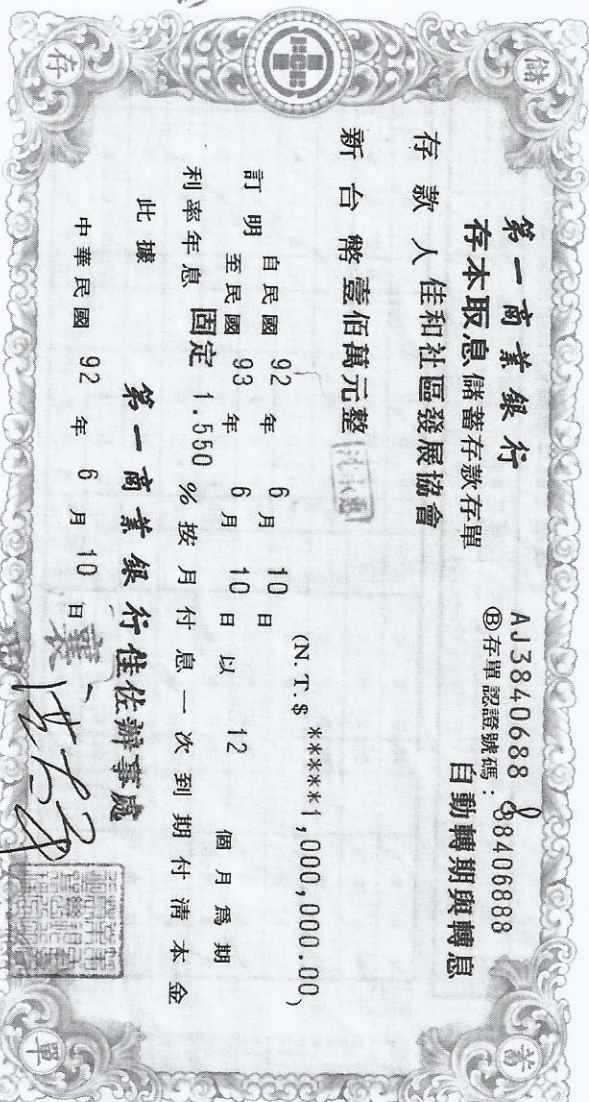 儲
蓄
存
單
FCB
第一商業銀行
存本取息儲蓄存款存單
AJ3840688
Ⓑ存單認證號碼：88406888
自動轉期與轉息
存款人 佳和社區發展協會
新台幣 壹佰萬元整
(N.T.$ *****1,000,000.00)
訂明 自民國 92 年 6 月 10 日
至民國 93 年 6 月 10 日以 12 個月爲期
利率年息 固定 1.550 % 按月付息一次到期付清本金
此據
第一商業銀行佳佐辦事處
中華民國 92 年 6 月 10 日